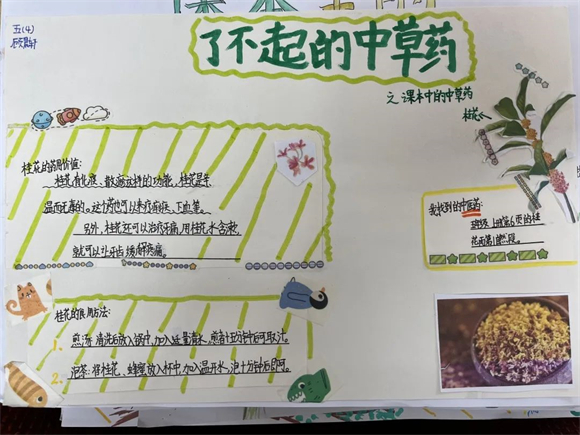 五(4)
了不起的中草药
之课本中的中草药
桂花
桂花的药用价值:
桂花有化痰、散瘀这样的功能,桂花是辛
温而无毒的。这个花也可以来疗痰饮、下血等。
另外,桂花还可以治疗牙痛,用桂花水含漱,
就可以让牙齿缓解疼痛。
我找到的中草药:
年级上册第6页的桂
花雨第1自然段。
桂花的食用方法:
1. 煎汤:清洗后放入锅中,加入适量清水,煎煮十五分钟后可取汁。
2. 泡茶:将桂花、蜂蜜放入杯中,加入温开水,泡十分钟后即可。